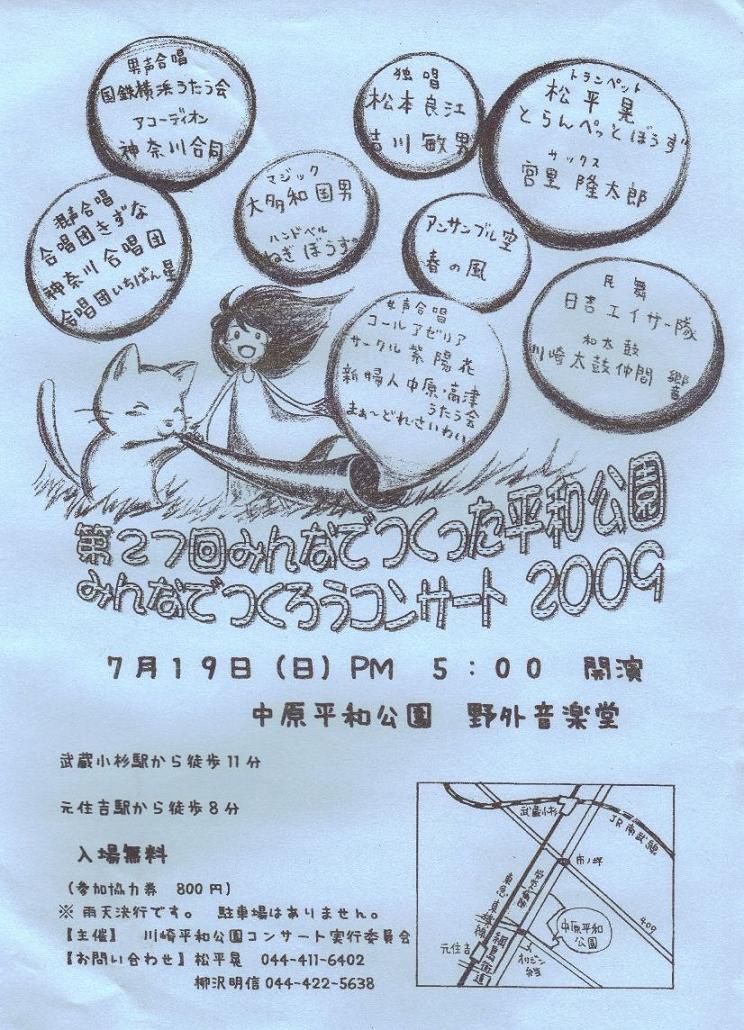 男声合唱
国鉄横浜うたう会
アコーディオン
神奈川合同
独唱
松本良江
吉川敏男
トランペット
松平晃
とらんぺっとぼうず
サックス
宮里隆太郎
混声合唱
合唱団きずな
神奈川合唱団
合唱団いちばん星
マジック
大多和国男
ハンドベル
ねぎぼうず
アンサンブル空
春の風
女声合唱
コールアゼリア
サークル紫陽花
新婦人中原・高津
うたう会
まぁ〜どれさいわい
民舞
日吉エイサー隊
和太鼓
川崎太鼓仲間 響
第27回みんなでつくった平和公園
みんなでつくろうコンサート 2009
7月19日(日)PM 5:00 開演
中原平和公園 野外音楽堂
武蔵小杉駅から徒歩11分
元住吉駅から徒歩8分
入場無料
(参加協力券 800円)
※雨天決行です。 駐車場はありません。
【主催】 川崎平和公園コンサート実行委員会
【お問い合わせ】松平晃 044-411-6402
柳沢明信044-422-5638
武蔵小杉
JR南武線
市ノ坪
東急東横線
綱島街道
409
中原平和
公園
元住吉
オリジン
弁当